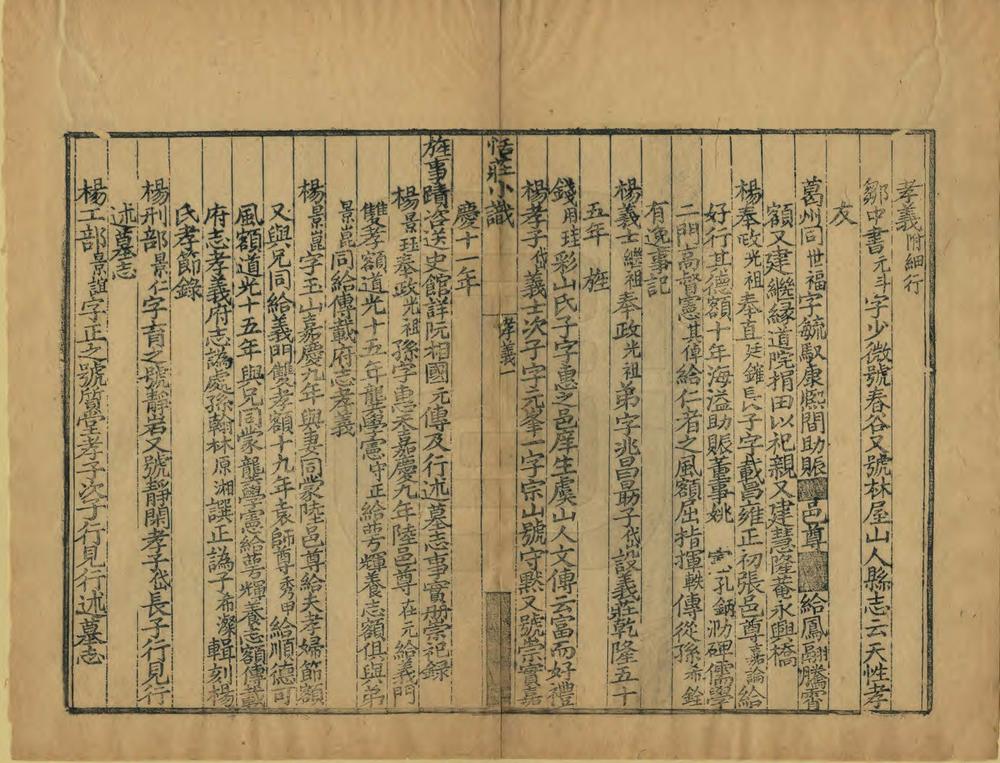 孝義附細行
鄒中書元斗字少微號春谷又號林屋山人縣志云天性孝
友
葛州同世福字毓馭康熙間助賑邑尊給鳳翮騰霄
額又建繼緣道院捐田以祀親又建慧隆菴永興橋
楊奉政光祖奉直廷鑵長子字載昌雍正初張邑尊嘉論給
好行其德額十年海溢助賑董事姚孔鈵泐碑儒學
二門高督憲其倬給仁者之風額屈指揮軼傳從孫希銓
有逸事記
楊義士繼祖奉政光祖弟字兆昌勗子岱設義莊乾隆五十
五年 旌
錢用珪彩山氏子字惠之邑庠生虞山人文傳云富而好禮
楊孝子岱義士次子字元峯一字宗山號守默又號崇實嘉
恬莊小識
孝義一
慶十一年
旌事蹟咨送史館詳阮相國元傳及行述墓志事實册崇祀錄
楊景珏奉政光祖孫字惠禾嘉慶九年陸邑尊在元給義門
雙孝額道光十五年龔學憲守正給蕚輝養志額俱與弟
景崑同給傳載府志孝義
楊景崑字玉山嘉慶九年與妻同蒙陸邑尊給夫孝婦節額
又與兄同給義門雙孝額十九年袁師尊秀甲給順德可
風額道光十五年與兄同蒙龔學憲給蕚輝養志額傳載
府志孝義府志譌處孫翰林原湘譔正譌子希灤輯刻楊
氏孝節錄
楊刑部景仁字育之號靜岩又號靜閑孝子岱長子行見行
述墓志
楊工部景誼字正之號質堂孝子次子行見行述墓志